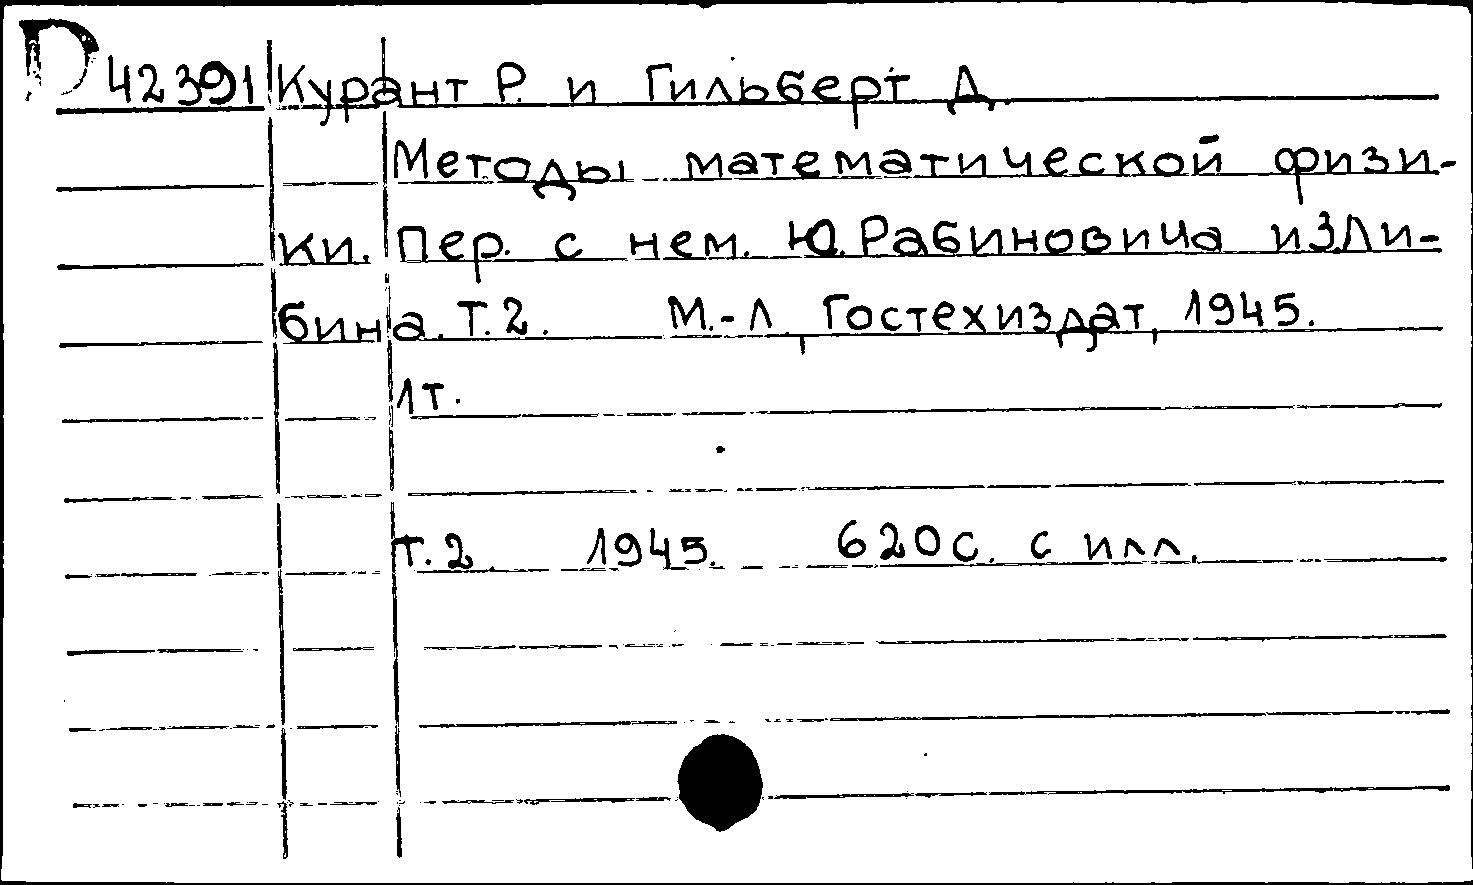 D 42391 Курант Р. и Гильберт Д.
Методы математической физи-
ки. Пер. с нем. Ю. Рабиновича и З. Ли-
бина. Т. 2. М.-Л., Гостехиздат, 1945.
1 т.
Т. 2. 1945. 620 с. с илл.